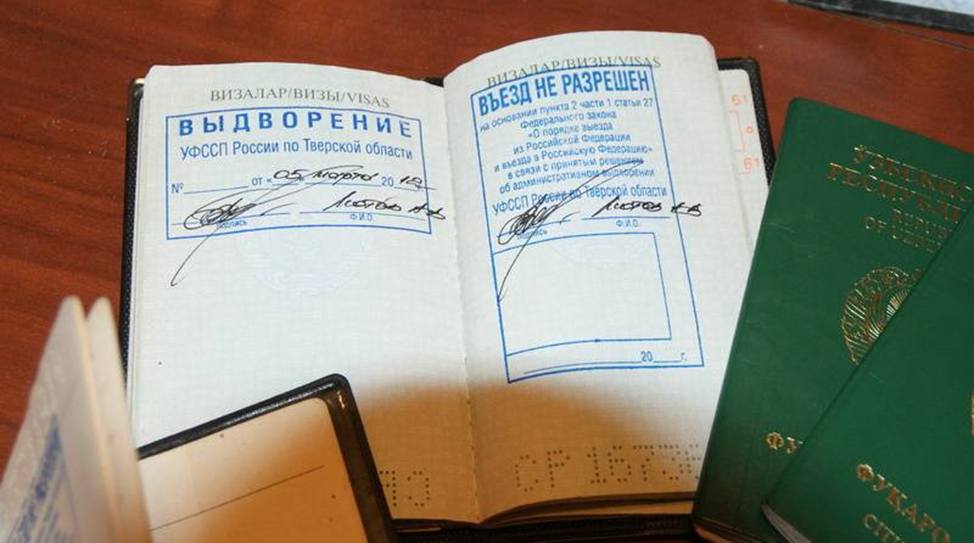 ВИЗАЛАР/ВИЗЫ/VISAS
ВЫДВОРЕНИЕ
УФССП России по Тверской области
№ от «05 марта 2018
подпись Ф.И.О.
ВИЗАЛАР/ВИЗЫ/VISAS
ВЪЕЗД НЕ РАЗРЕШЕН
на основании пункта 2 части 1 статьи 27
Федерального закона
«О порядке выезда
из Российской Федерации
и въезда в Российскую Федерацию»
в связи с принятым решением
об административном выдворении
УФССП России по Тверской области
подпись Ф.И.О.
20 г.
61
61
ЎЗБЕКИС
РЕСПУБЛИ
REPUB
OF UZBEK
ФУ
ФУҚАРО